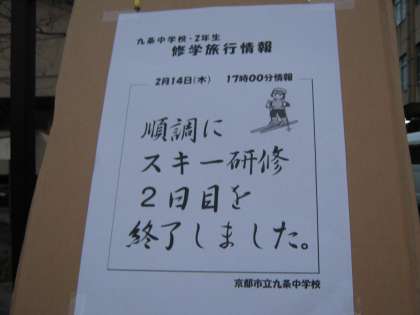 九条中学校・2年生
修学旅行情報
2月14日(木) 17時00分情報
順調に
スキー研修
2日目を
終了しました。
京都市立九条中学校